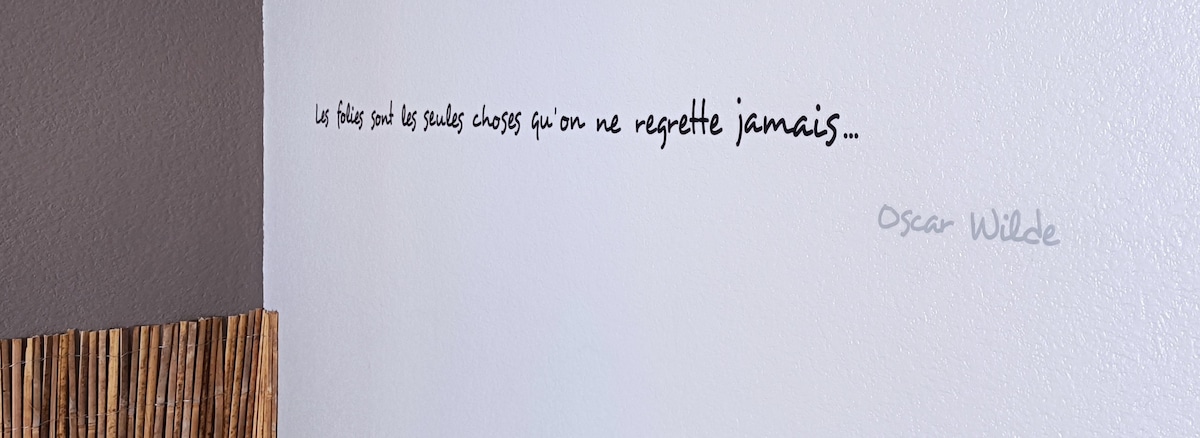 Les folies sont les seules choses qu'on ne regrette jamais...
Oscar Wilde